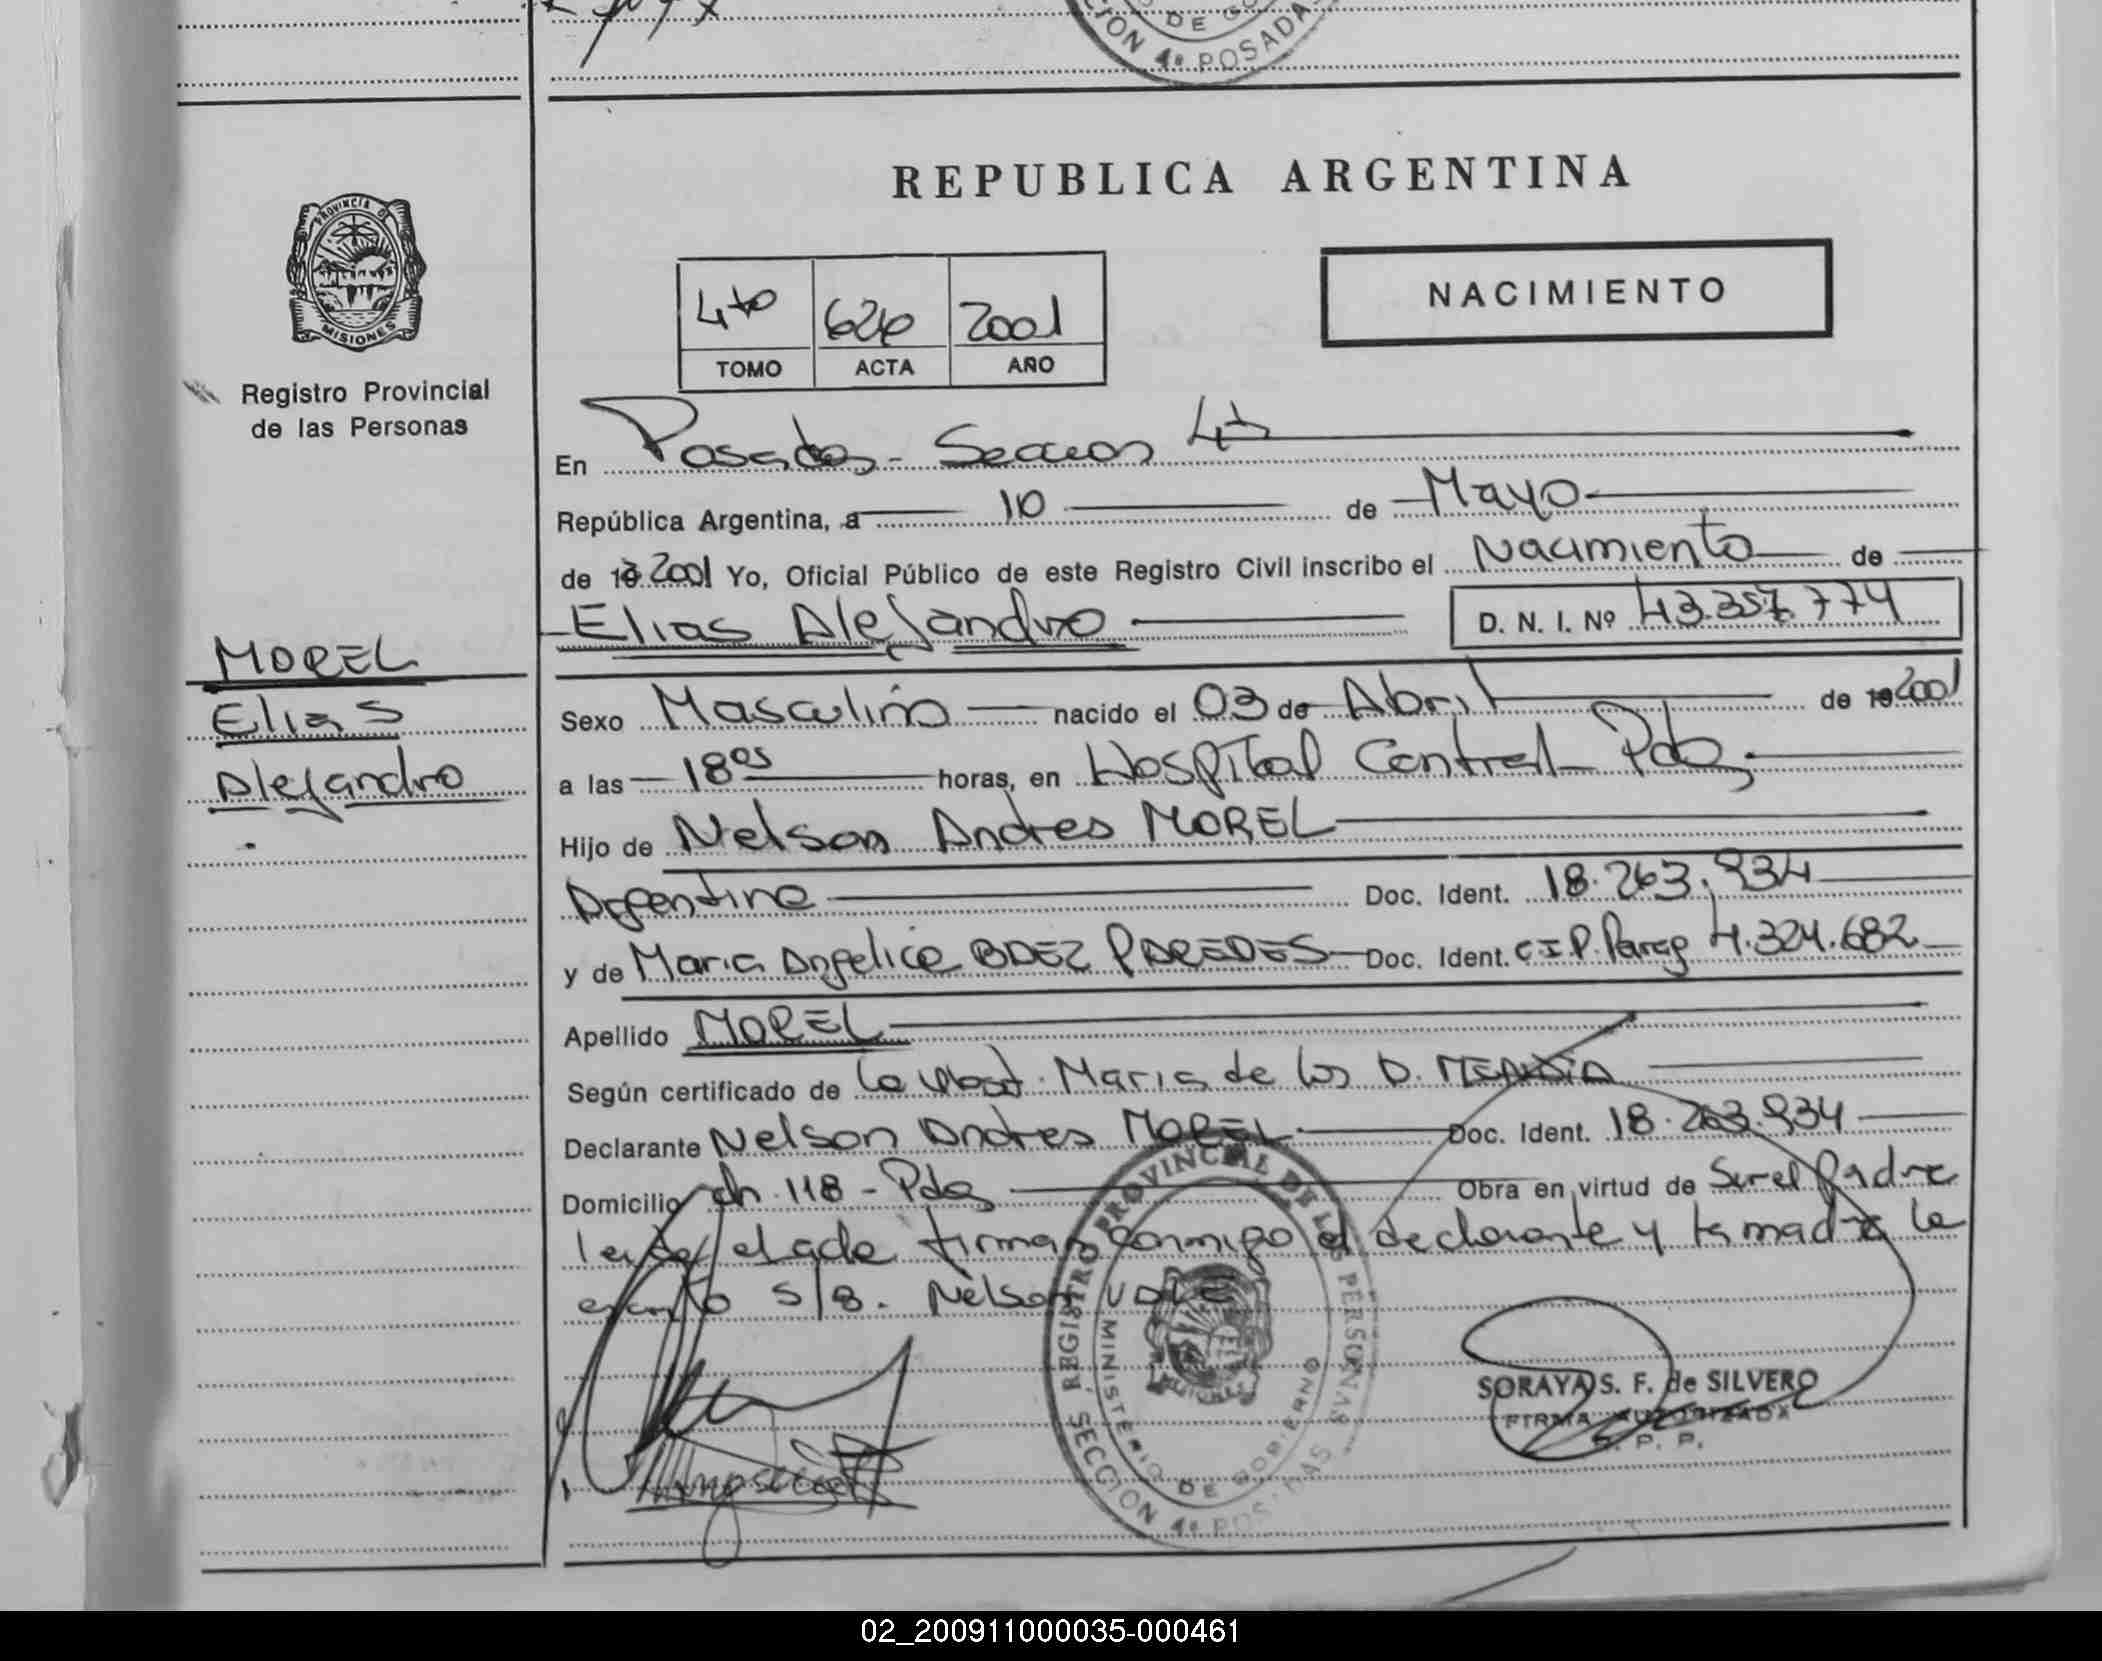 CION 4ª POSADA
DE GO
REPUBLICA ARGENTINA
PROVINCIA DE
MISIONES
Registro Provincial
de las Personas
NACIMIENTO
4to 2001
TOMO ACTA AÑO
En Posadas - Seccion 4ta
República Argentina, a 10 de Mayo
de 19 2001 Yo, Oficial Público de este Registro Civil inscribo el Nacimiento de
Elias Alejandro D. N. I. Nº 43.357.774
MOREL
Elias
Alejandro
Sexo Masculino nacido el 03 de Abril de 19 2001
a las 18 05 horas, en Hospital Central Pdas.
Hijo de Nelson Andres MOREL
Argentino Doc. Ident. 18.263.934
y de Maria Angelica BAEZ PAREDES Doc. Ident. C.I.P. Parag 4.324.682
Apellido MOREL
Según certificado de la Obst. Maria de los A.
Declarante Nelson Andres MOREL Doc. Ident. 18.263.934
Domicilio ch. 118 - Pdas Obra en virtud de Ser el Padre
leida el acta firman conmigo el declarante y la madre le
S/B. Nelson VALE
REGISTRO PROVINCIAL DE LAS PERSONAS
MINISTERIO DE GOBIERNO
MISIONES
SECCION 4ª POSADAS
SORAYA S. F. de SILVERO
FIRMA AUTORIZADA
R. P. P.
02_200911000035-000461